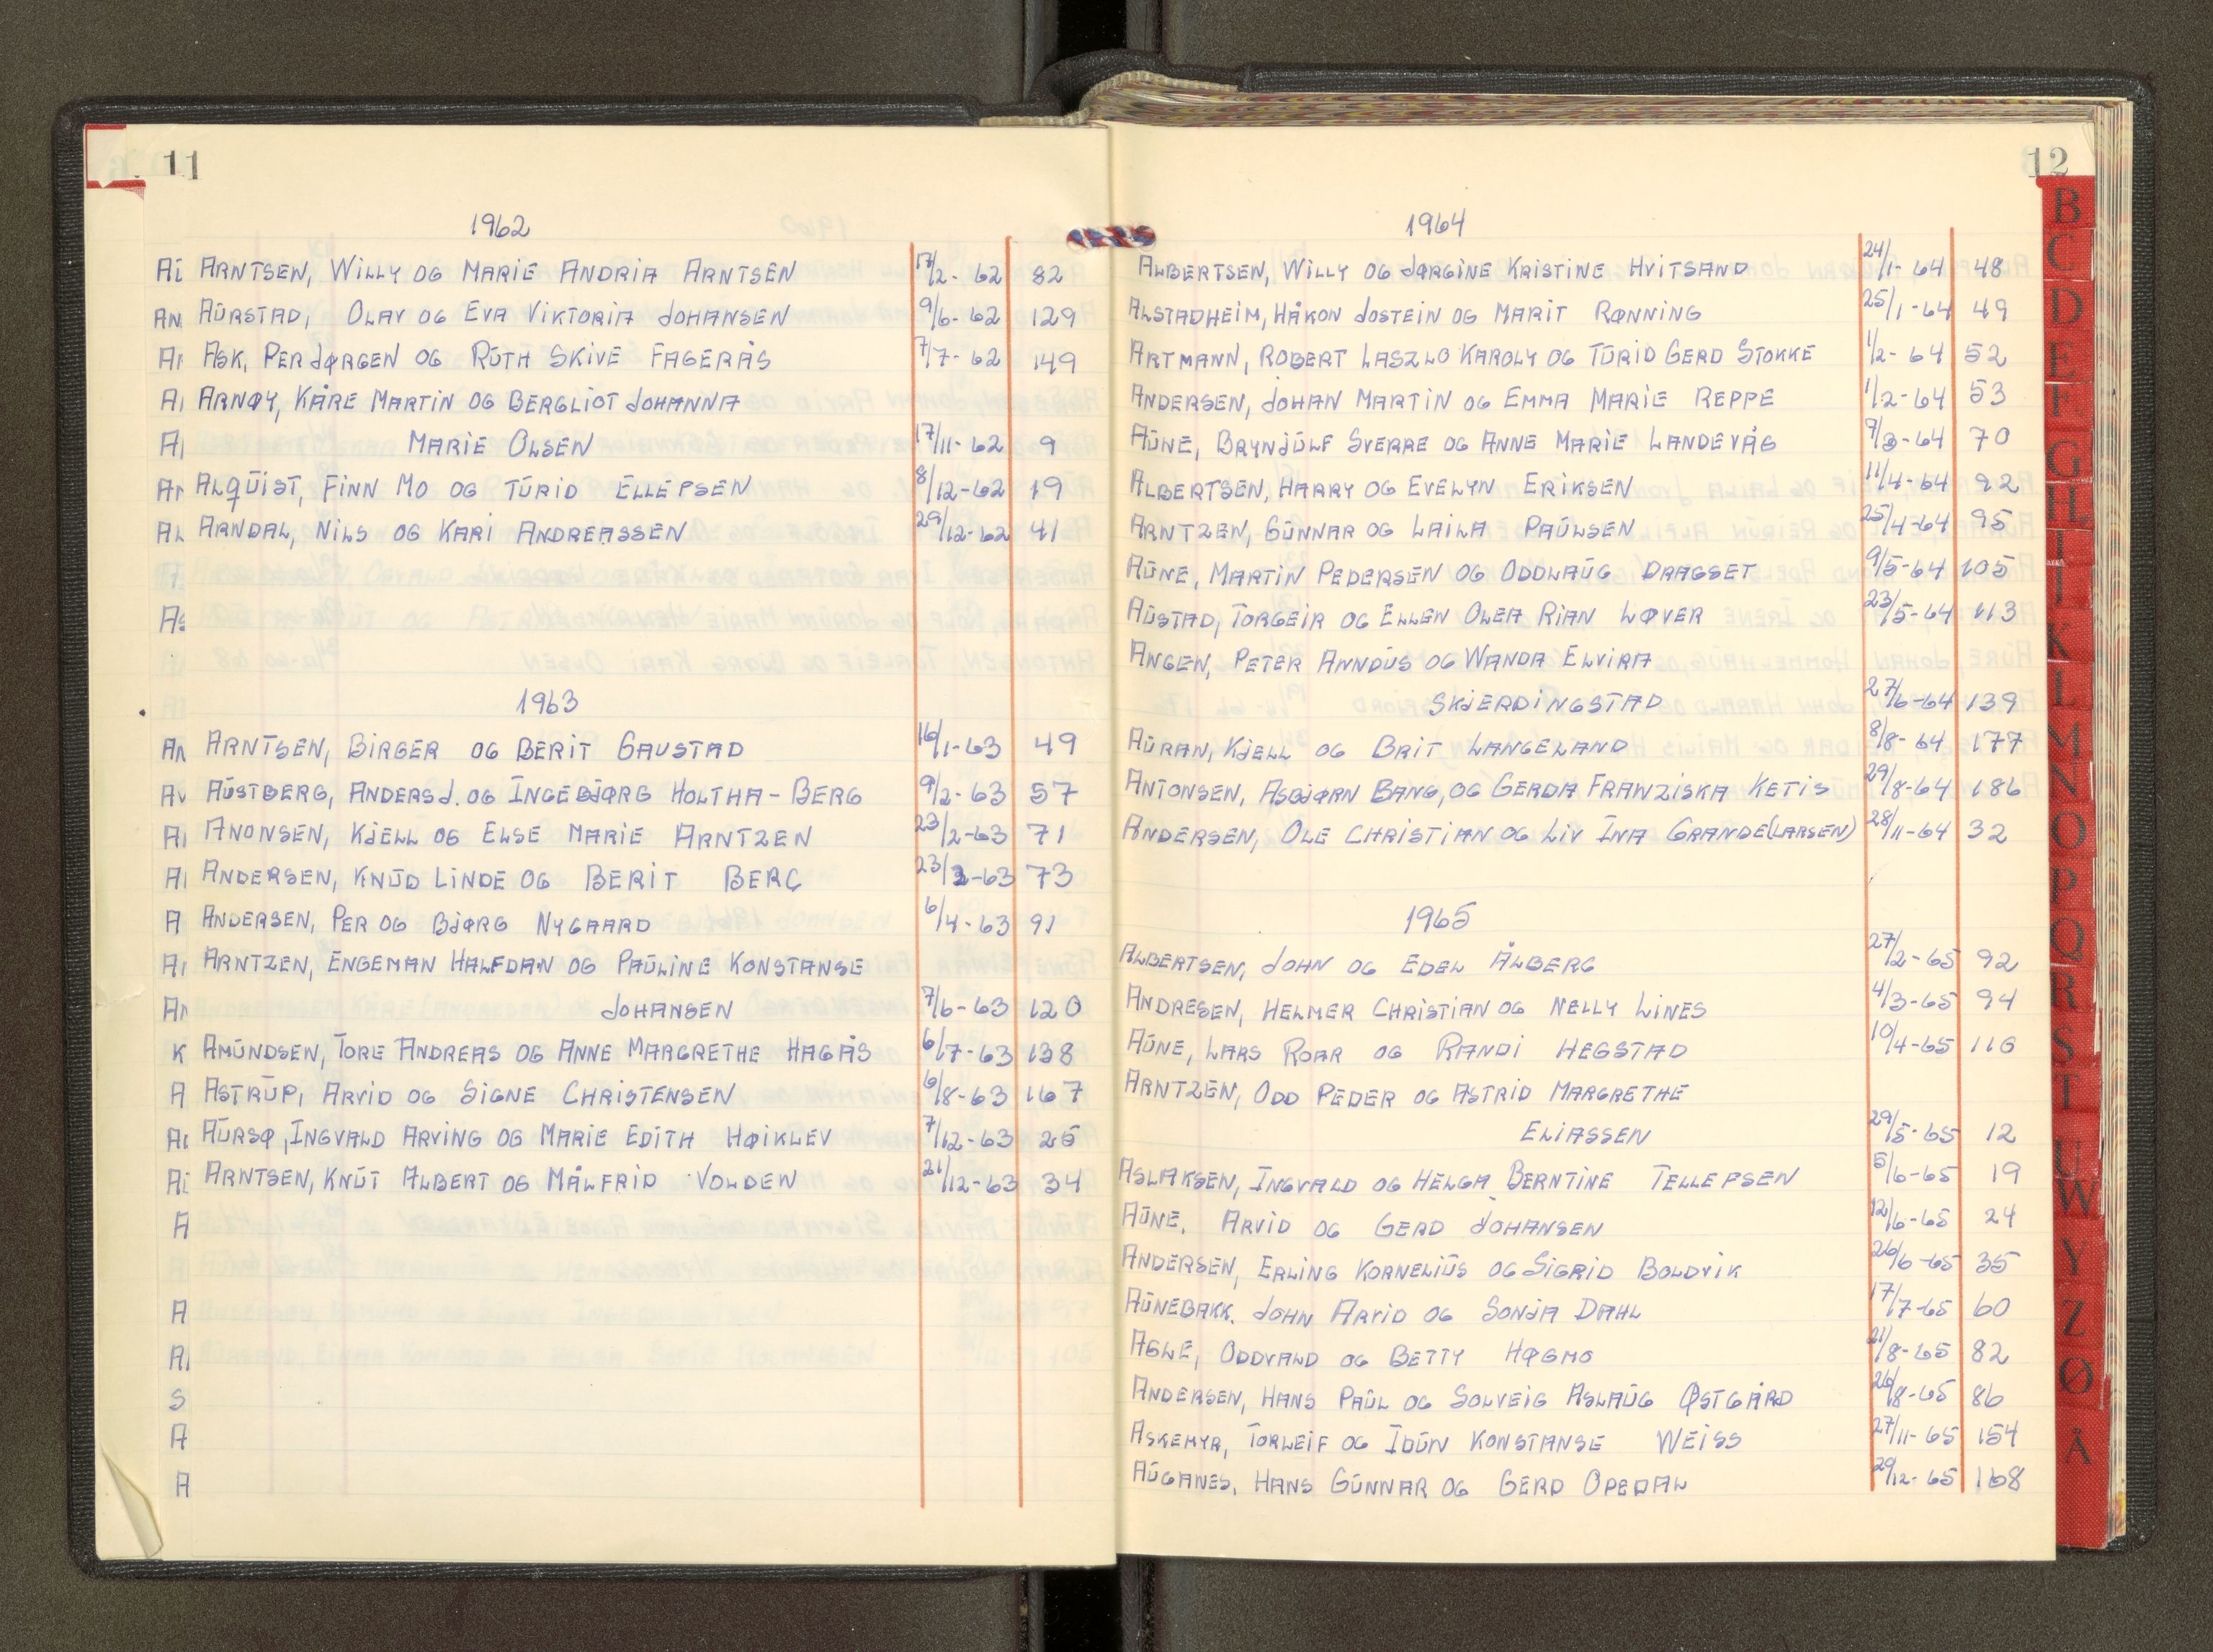 11
1962
Arntsen, Willy og Marie Andria Arntsen 17/2-62 82
Aurstad, Olav og Eva Viktoria Johansen 9/6-62 129
Ask, Per Jørgen og Ruth Skive Fagerås 7/7-62 149
Arnøy, Kåre Martin og Bergliot Johanna
Marie Olsen 17/11-62 9
Alquist, Finn Mo og Turid Ellefsen 8/12-62 19
Arndal, Nils og Kari Andreassen 29/12-62 41
1963
Arntsen, Birger og Berit Gaustad 16/1-63 49
Austberg, Anders J. og Ingebjørg Holtha-Berg 9/2-63 57
Anonsen, Kjell og Else Marie Arntzen 23/2-63 71
Andersen, Knud Linde og Berit Berg 23/2-63 73
Andersen, Per og Bjørg Nygaard 6/4-63 91
Arntzen, Engeman Halfdan og Pauline Konstanse
Johansen 7/6-63 120
Amundsen, Tore Andreas og Anne Margrethe Hagås 6/7-63 138
Astrup, Arvid og Signe Christensen 6/8-63 167
Aursø, Ingvald Arving og Marie Edith Høiklev 7/12-63 25
Arntsen, Knut Albert og Målfrid Volden 21/12-63 34
12
1964
Albertsen, Willy og Jørgine Kristine Hvitsand 24/1-64 48
Alstadheim, Håkon Jostein og Marit Rønning 25/1-64 49
Artmann, Robert Laszlo Karoly og Turid Gerd Stokke 1/2-64 52
Andersen, Johan Martin og Emma Marie Reppe 1/2-64 53
Aune, Brynjulf Sverre og Anne Marie Landevåg 9/3-64 70
Albertsen, Harry og Evelyn Eriksen 11/4-64 92
Arntzen, Gunnar og Laila Paulsen 25/4-64 95
Aune, Martin Pedersen og Oddlaug Dragset 9/5-64 105
Austad, Torgeir og Ellen Olea Rian Løver 23/5-64 113
Angen, Peter Anndus og Wanda Elvira
Skjerdingstad 27/6-64 139
Auran, Kjell og Brit Langeland 8/8-64 177
Antonsen, Asbjørn Bang, og Gerda Franziska Ketis 29/8-64 186
Andersen, Ole Christian og Liv Ina Grande (Larsen) 28/11-64 32
1965
Albertsen, John og Edel Ålberg 27/2-65 92
Andresen, Helmer Christian og Nelly Lines 4/3-65 94
Aune, Lars Roar og Randi Hegstad 10/4-65 116
Arntzen, Odd Peder og Astrid Margrethe
Eliassen 29/5-65 12
Aslaksen, Ingvald og Helga Berntine Tellefsen 5/6-65 19
Aune, Arvid og Gerd Johansen 12/6-65 24
Andersen, Erling Kornelius og Sigrid Boldvik 26/6-65 35
Aunebakk, John Arvid og Sonja Dahl 17/7-65 60
Agle, Oddvald og Betty Høgmo 21/8-65 82
Andersen, Hans Paul og Solveig Aslaug Østgård 26/8-65 86
Askemyr, Torleif og Idun Konstanse Weiss 27/11-65 154
Auganes, Hans Gunnar og Gerd Opedal 29/12-65 168
B
C
D
E
F
G
H
I
J
K
L
M
N
O
P
Q
R
S
T
U
W
Y
Z
Ø
Å